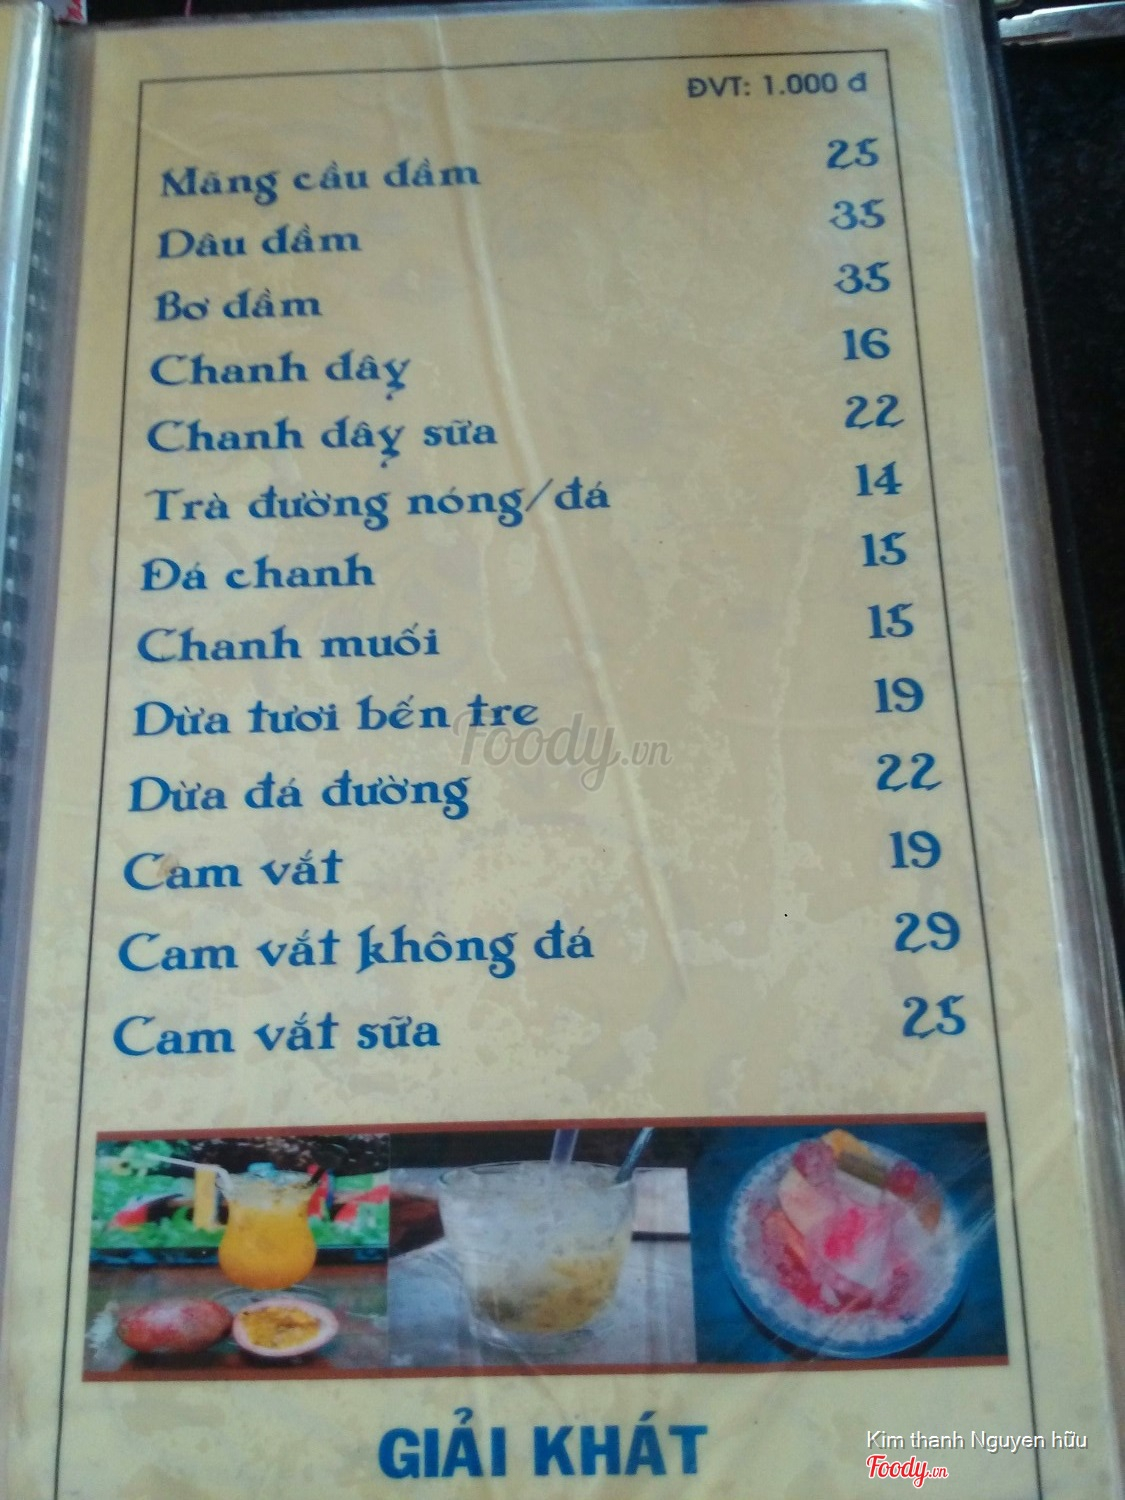 ĐVT: 1.000 đ
Mãng cầu dầm 25
Dâu dầm 35
Bơ dầm 35
Chanh dâỵ 16
Chanh dâỵ sữa 22
Trà đường nóng/đá 14
Đá chanh 15
Chanh muối 15
Dừa tươi bến tre 19
Dừa đá đường 22
Cam vắt 19
Cam vắt không đá 29
Cam vắt sữa 25
Foody.vn
GIẢI KHÁT
Kim thanh Nguyen hữu
Foody.vn